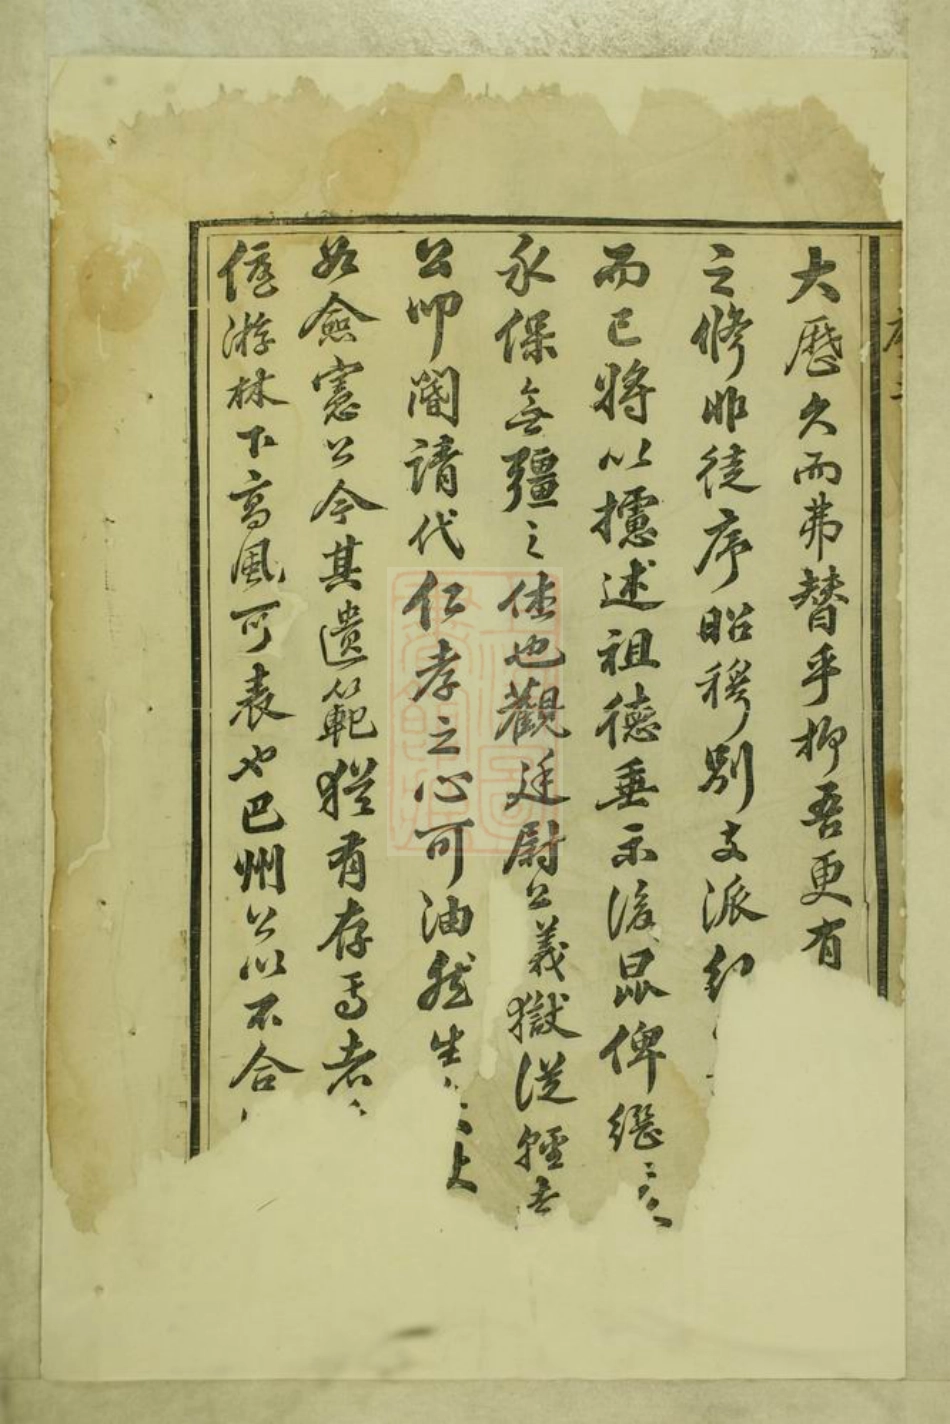 大歷久而弗替乎抑吾更有
之修非徒序昭穆別支派
而已將以攄述祖德垂示後昆俾繼
永保無疆之休也觀廷尉公義獄從輕
公叩閽請代仁孝之心可油然生
如僉憲公今其遺範猶有存焉者
優游林下高風可表也巴州公以不合